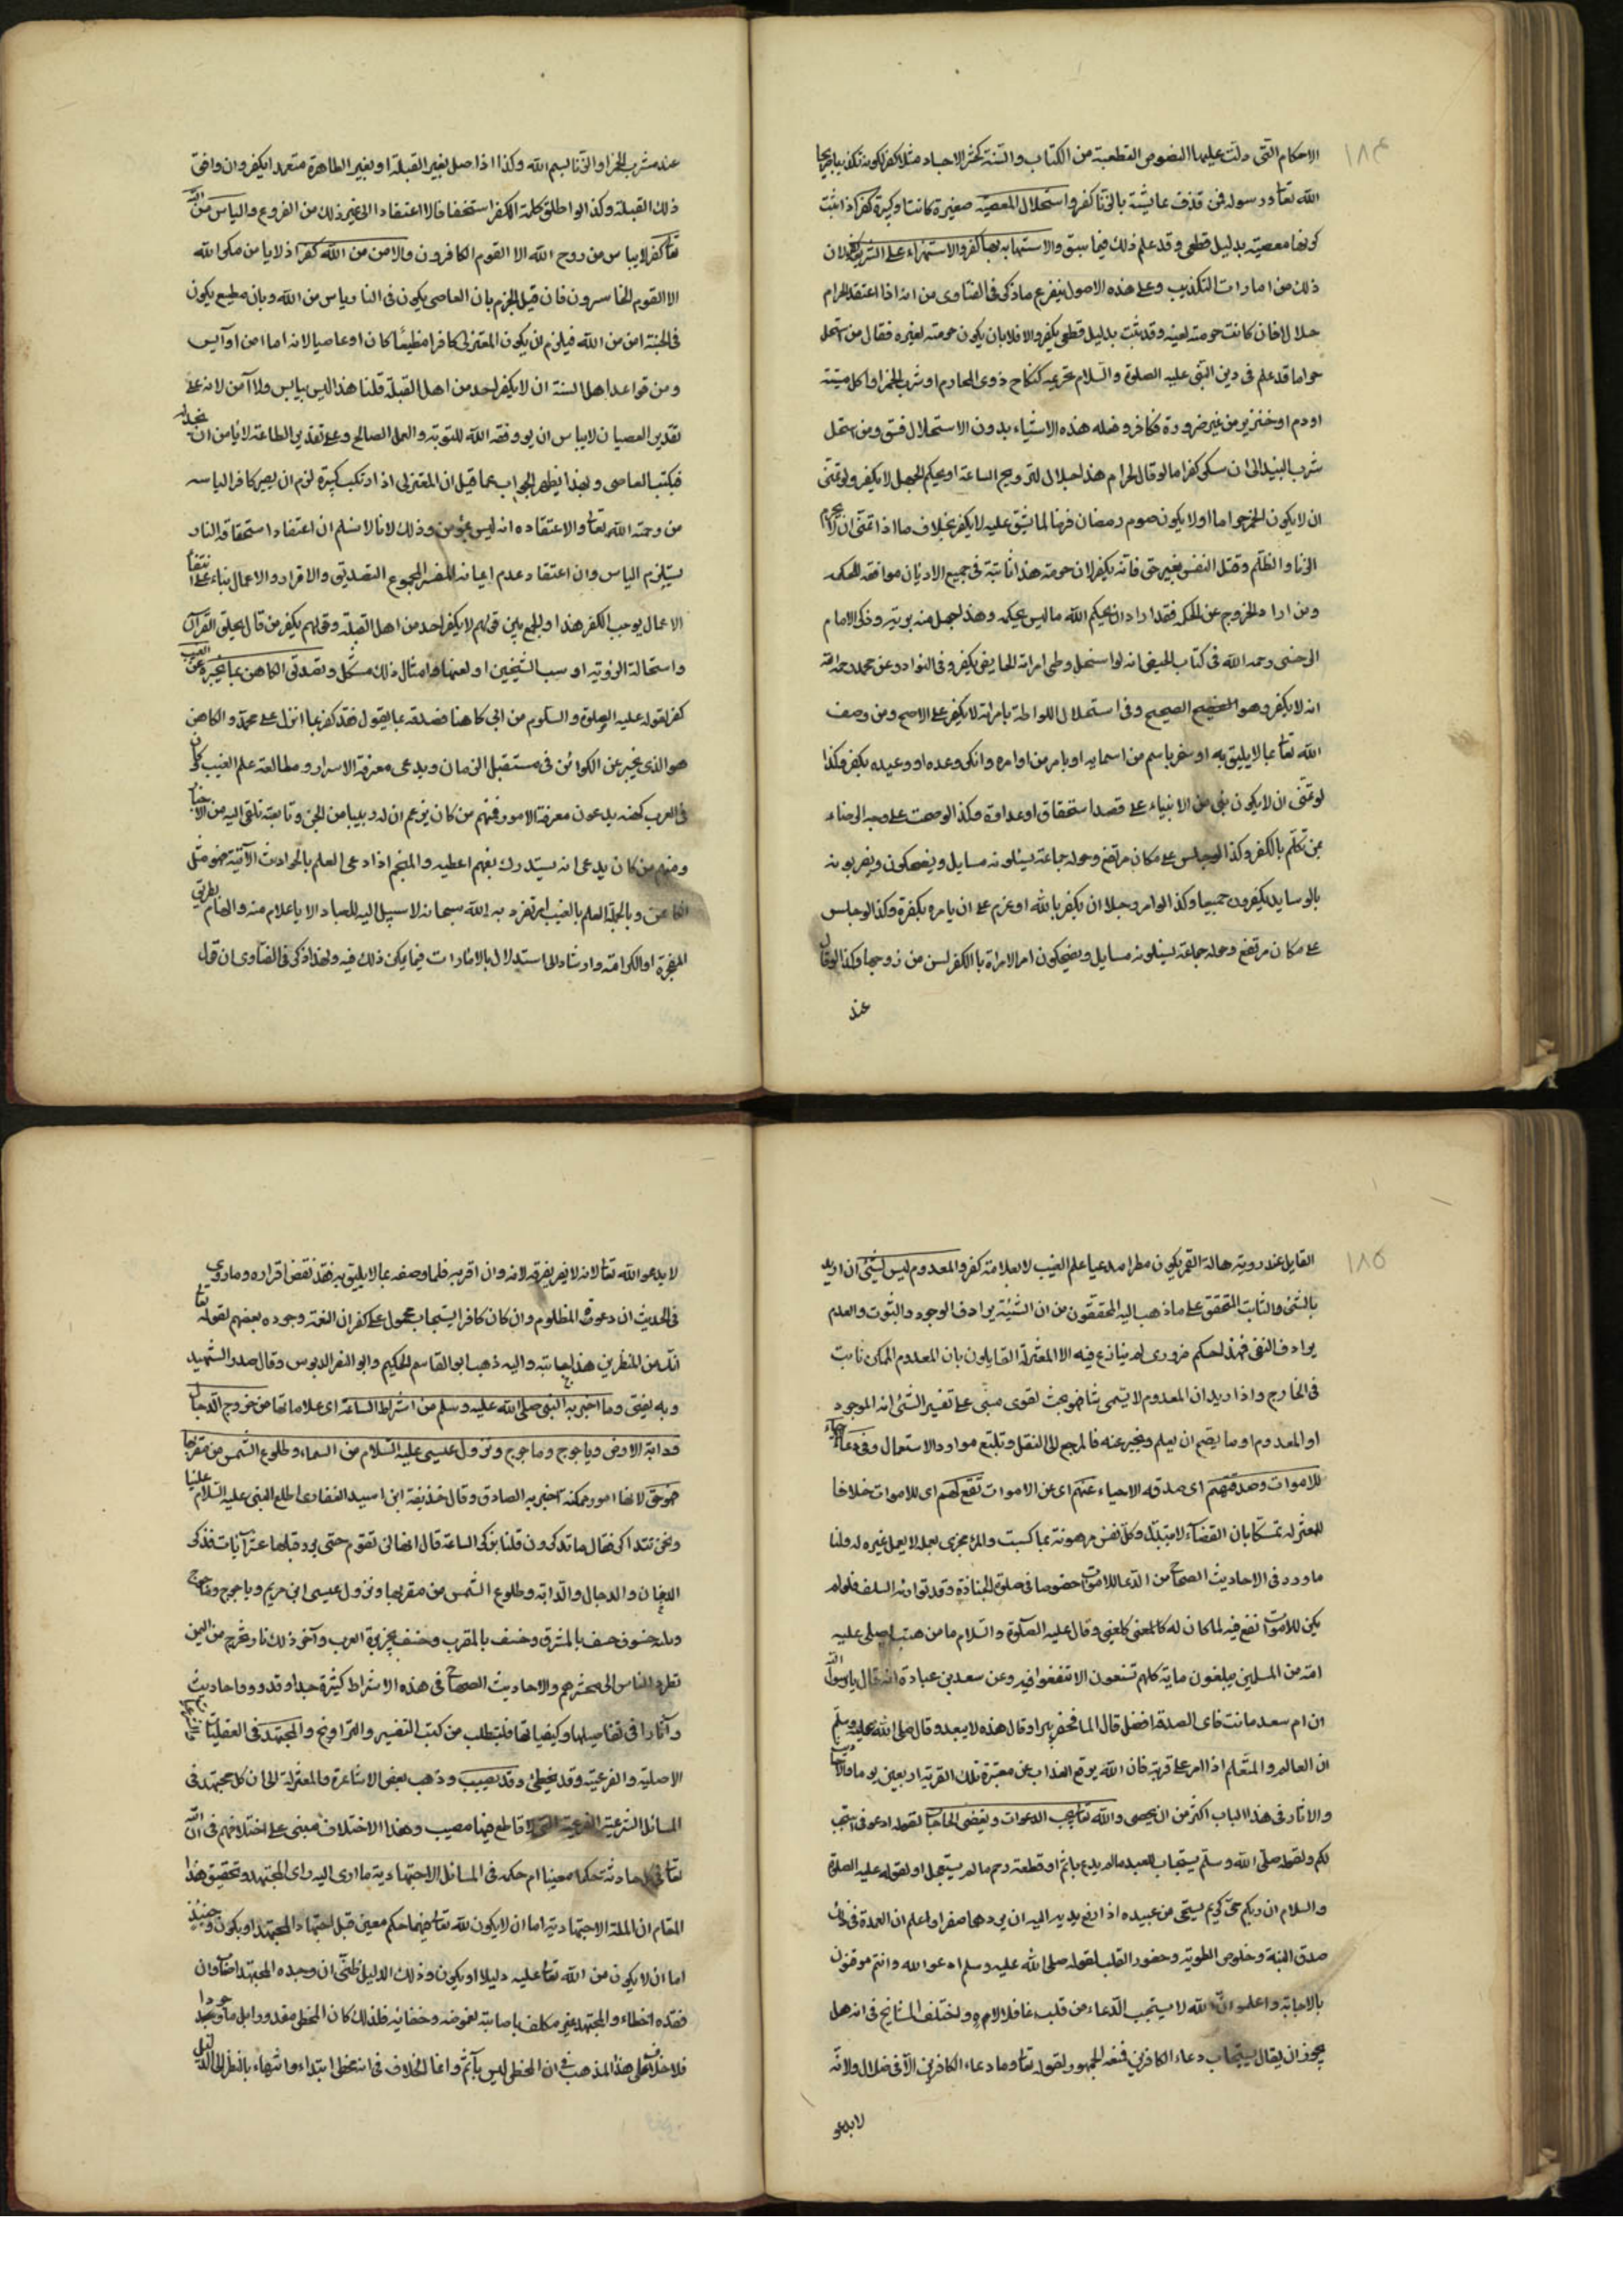 ١٨٤
الاحكام التى دلت عليها النصوص القطعية من الكتاب والسنة كحشر الاجساد مثلا كفر لكونه تكذيبا صريحا
الله تعا ورسوله فمن قذف عايشة بالزنا كفر واستحلال المعصية صغيرة كانت او كبيرة كفر اذا ثبت
كونها معصية بدليل قطعى وقد علم ذلك فيما سبق والاستهانة بها كفر والاستهزاء على الشريعة كفر لان
ذلك من امارات التكذيب وعلى هذه الاصول يتفرع ما ذكر فى الفتاوى من انه اذا اعتقد الحرام
حلالا فان كانت حرمته لعينه وقد ثبت بدليل قطعى يكفر والا فلا بان يكون حرمته لغيره فقال من استحل
حراما قد علم فى دين النبى عليه الصلوة والسلام تحريمه كنكاح ذوى المحارم او شرب الخمر او اكل ميتة
او دم او خنزير من غير ضرورة فكافر وفعله هذه الاشياء بدون الاستحلال فسق ومن استحل
شرب النبيذ الى ان سكر كفر اما لو قال لحرام هذا حلال لترويج الساعة او بحكم الجهل لا يكفر ولو تمنى
ان لا يكون الخمر حراما او لا يكون صوم رمضان فرضا لما يشق عليه لا يكفر بخلاف ما اذا تمنى ان لا يحرم
الزنا والظلم وقتل النفس بغير حق فانه يكفر لان حرمته هذا ثابتة فى جميع الاديان موافقه للحكمه
ومن اراد الخروج عن الحكمه فقد اراد ان يحكم الله ما ليس بحكمه وهذا جهل منه بربه وذكر الامام
الرخسى رحمه الله فى كتاب الحيض انه لو استحل وطى امراته الحايض يكفر وفى النوادر عن محمد رحمه الله
انه لا يكفر وهو الصحيح وفى استحلال اللواطة بامراته لا يكفر على الاصح ومن وصف
الله تعا بما لا يليق به او سخر باسم من اسمايه او بامر من اوامره وانكر وعده او وعيده يكفر وكذا
لو تمنى ان لا يكون نبى من الانبياء على قصد استحقاق او عداوة وكذا لو ضحك على وجه الرضاء
بمن تكلم بالكفر وكذا لو جلس على مكان مرتفع وحوله جماعة يسئلونه مسايل ويضحكون ويضربونه
بالوسايد يكفرون جميعا وكذا لو امر رجلا ان يكفر بالله او عزم على ان يامره بكفرة وكذا لو جلس
على مكان مرتفع وحوله جماعة يسئلونه مسايل ويضحكون امر الامراة باالكفر لسن من زوجها وكذا لو قال
عند
عند شرب الخمر او الزنا بسم الله وكذا اذا صلى بغير القبلة او بغير الطاهرة متعمدا يكفر وان وافق
ذلك القبلة وكذا لو اطلق كلمة الكفر استخفافا لا اعتقادا الى غير ذلك من الفروع والياس من الله
تعا كفر لا يياس من روح الله الا القوم الكافرون والامن من الله كفر اذ لا يامن مكر الله
الا القوم الخاسرون فان قيل الجزم بان العاصى يكون فى النار ياس من الله وبان مطيع يكون
فى الجنة امن من الله فيلزم ان يكون المعتزلى كافرا مطيعا كان او عاصيا لانه اما امن او آيس
ومن قواعد اهل السنة ان لا يكفر احد من اهل القبلة قلنا هذا ليس بيايس ولا آمن لانه على
تقدير العصيان لا يياس ان يووفقه الله للتوبة والعمل الصالح وعلى تقدير الطاعة لا يامن ان يخذله
فيكتب العاصى وبهذا يظهر الجواب عما قيل ان المعتزلى اذا ارتكب كبيرة لزم ان يصير كافر الياسه
من رحمته الله تعا والاعتقاده انه ليس بمؤمن وذلك لانا لا نسلم ان اعتقاد استحقاقه النار
يستلزم الياس وان اعتقاد عدم ايمانه المفسر المجموع التصديق والاقرار والاعمال بناء على انتفا
الاعمال يوجب الكفر هذا والجمع بين قولهم لا يكفر احد من اهل القبلة وقولهم يكفر من قال بخلق القرآن
واستحالة الرؤية او سب الشيخين او لعنهما وامثال ذلك مشكل وتصديق الكاهن بما يخبره عن الغيب
كفر لقوله عليه الصلوة والسلام من اتى كاهنا فصدقه بما يقول فقد كفر بما انزل على محمد والكاهن
هو الذى يخبر عن الكوائن فى مستقبل الزمان ويدعى معرفة الاسرار ومطالعة علم الغيب كان
فى العرب كهنه يدعون معرفة الامور فمنهم من كان يزعم ان له ربيبا من الجن وتابعته تلقى اليه من الاخبار
ومنهم من كان يدعى انه يستدرك بفهم اعطيه والمنجم اذا ادعى العلم بالحوادث الآتية فهو مثل
الكاهن وبالجملة العلم بالغيب امر تفرد به الله سبحانه لا سبيل اليه للعباد الا باعلام منه والهام بطريق
المعجزة او الكرامة وارشاد الى استدلال بالامارات فيما يمكن ذلك فيه ولهذا ذكر فى الفتاوى ان قول
١٨٥
القايل عند روية هالة القمر يكون مطرا مدعيا علم الغيب لا بعلامة كفر والمعدوم ليس بشئ ان اريد
بالشئ والثابت المتحقق على ماذهب اليه المحققون من ان الشيئة يرادف الوجود والثبوت والعدم
يرادف النفى فهذا حكم ضرورى لم ينازع فيه الا المعتزلة القايلون بان المعدوم الممكن ثابت
فى الخارج واذا اريد ان المعدوم لا يسمى شا فهو بحث لغوى مبنى على تفسير الشئ انه الموجود
او المعدوم او ما يصح ان يعلم ويخبر عنه فالمرجع الى النقل وتتبع موارد الاستعمال وفى دعاء الاحياء
للاموات وصدقتهم اى صدقه الاحياء عنهم اى عن الاموات نفع لهم اى للاموات خلافا
للمعتزله تمسكا بان القضاء لا يتبدل وكل نفس مرهونة بما كسبت والمرء مجزى بعمله لا يعمل غيره له ولنا
ما ورد فى الاحاديث الصحاح من الدعا للاموات خصوصا فى صلوة الجنازة وقد توارثه السلف فلو لم
يكن للاموات نفع فيه لما كان له كالمعنى كالمعنى وقال عليه الصلوة والسلام ما من ميت يصلى عليه
امة من المسلمين يبلغون ماية كلهم تشفعون الا تشفعوا فيه وعن سعد بن عبادة انه قال يا رسول الله
ان ام سعد ماتت فاى الصدقة افضل قال الما فحفر بيرا وقال هذه لا م سعد وقال صلى الله عليه وسلم
ان العالم والمتعلم اذا امر على قرية فان الله يرفع العذاب عن مقبرة تلك القرية اربعين يوما والاحاديث
والاثار فى هذا الباب اكثر من ان يحصى والله تعا يجيب الدعوات ويقضى الحاجات لقوله ادعونى استجب
لكم ولقوله صلى الله وسلم يستجاب العبد مالم يدع باثم او قطعة رحم مالم يستعجل او لقوله عليه الصلوة
والسلام ان ربكم حى كريم يستحى من عبيده اذا رفع يديه اليه ان يردهما صفرا واعلم ان العمدة فى ذلك
صدق النية وخلوص الطوية وحضور القلب لقوله صلى الله عليه وسلم ادعوا الله وانتم موقنون
بالاجابة واعلموا ان الله لا يستجب الدعاء من قلب غافل لاه واختلف المشايخ فى انه هل
يجوز ان يقال يستجاب دعاء الكافرين فمنعه الجمهور لقوله تعا وما دعاء الكافرين الا فى ضلال ولانه
لا يدعو
لا يدعو الله تعا لانه لا يعرفه لانه وان اقر به فلما وصفه بما لا يليق به فقد نقض اقراره وما روى
فى الحديث ان دعوة المظلوم وان كان كافرا يستجاب محمول على كفران النعمة وجوده بعضهم لقوله تعا
انك من المنظرين هذا اجابته واليه ذهب ابو القاسم الحكيم وابو النصر الدبوس وقال صدر الشهيد
وبه يفتى وما اخبر به النبى صلى الله عليه وسلم من اشراط الساعة اى علاماتها من خروج الدجال
ودابة الارض وياجوج وماجوج ونزول عيسى عليه السلام من السماء وطلوع الشمس من مغربها
فهو حق لانها امور ممكنه اخبر به الصادق وقال حذيفة ابن اسيد الغفارى اطلع النبى عليه السلام علينا
ونحن نتذاكر فقال ما تذكرون قلنا نذكر الساعة قال انها لن تقوم حتى يرد قبلها عشر آيات فذكر
الدخان والدجال والدابة وطلوع الشمس من مغربها ونزول عيسى ابن مريم وياجوج وماجوج
وثلثه خسوف خسف بالمشرق وخسف بالمغرب وخسف بجزيرة العرب وآخر ذلك نار تخرج من اليمن
تطرد الناس الى محشرهم والاحاديث الصحاح فى هذه الاشراط كثيرة جدا وقد روو فا حاديث
وآثارا فى تفاصيلها وكيفياتها فلتطلب من كتب التفسير والتراويخ والمجتهد فى العقليات
الاصلية والفرعية وقد يخطئ وقد يصيب وذهب بعض الاشاعرة والمعتزلة الى ان كل مجتهد فى
المسائل الشرعية الفرعية التى لا قاطع فيها مصيب وهذا الاختلاف مبنى على اختلافهم فى ان لله
تعا فى كل حادثة حكما معينا ام حكمه فى المسائل الاجتهادية ما ادى اليه راى المجتهد وتحقيق هذا
المقام ان المسئلة الاجتهادية اما ان لا يكون لله تعا فيها حكم معين قبل اجتهاد المجتهد او يكون وحينئذ
اما ان لا يكون من الله تعا عليه دليلا او يكون وذلك الدليل ظنى ان وجده المجتهد اصاب وان
فقده اخطاء والمجتهد غير مكلف باصابته لغموضه وخفائه فلذلك كان المخطى معذورا بل ماجورا
فلا خلاف على هذا المذهب فى ان المخطى ليس بآثم وانما الخلاف فى انه مخطى ابتداء وانتهاء بالنظر الى الدليل